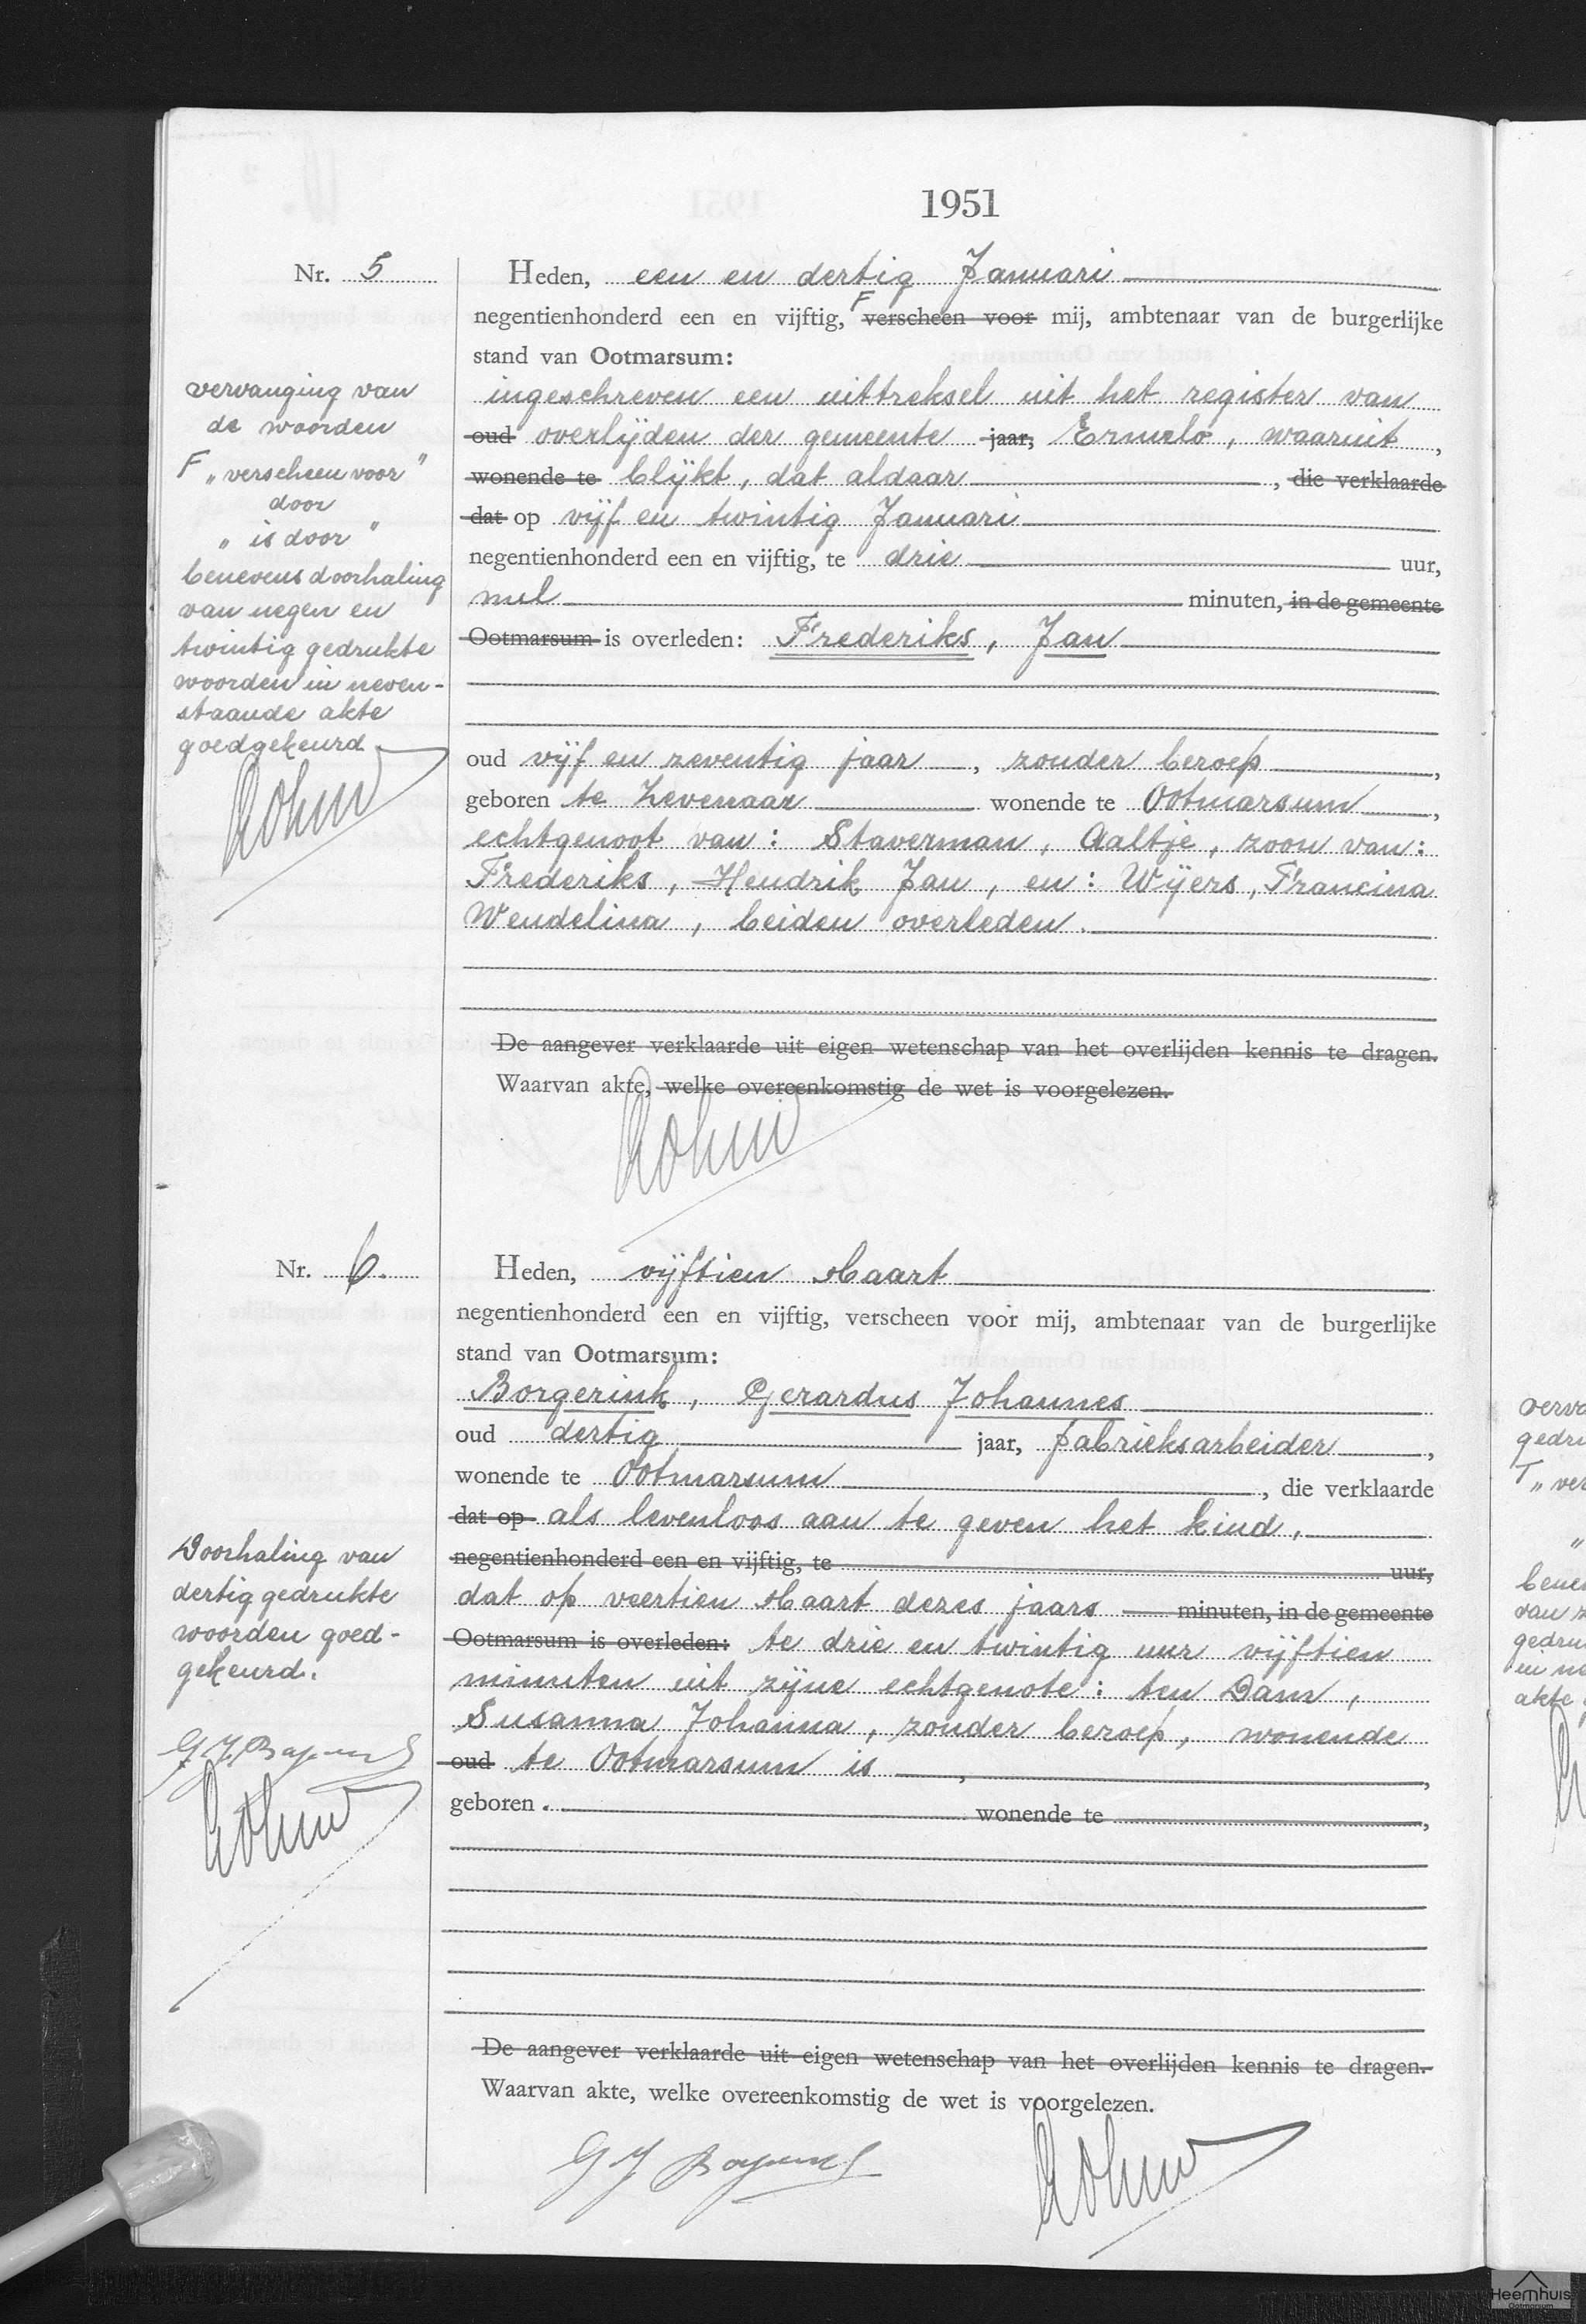 1951
Nr. 5
Heden, een en dertig Januari
negentienhonderd een en vijftig, F verscheen voor mij, ambtenaar van de burgerlijke
stand van Ootmarsum:
ingeschreven een uittreksel uit het register van
oud overlijden der gemeente jaar, Ermelo, waaruit,
wonende te blijkt, dat aldaar, die verklaarde
dat op vijf en twintig Januari
negentienhonderd een en vijftig, te drie uur,
nul minuten, in de gemeente
Ootmarsum is overleden: Frederiks, Jan
oud vijf en zeventig jaar, zonder beroep,
geboren te Zevenaar wonende te Ootmarsum,
echtgenoot van: Staverman, Aaltje, zoon van:
Frederiks, Hendrik Jan, en: Wijers, Francina
Wendelina, beiden overleden.
De aangever verklaarde uit eigen wetenschap van het overlijden kennis te dragen.
Waarvan akte, welke overeenkomstig de wet is voorgelezen.
vervanging van
de woorden
F „verscheen voor"
door
„is door"
benevens doorhaling
van negen en
twintig gedrukte
woorden in neven-
staande akte
goedgekeurd
Nr. 6.
Heden, vijftien Maart
negentienhonderd een en vijftig, verscheen voor mij, ambtenaar van de burgerlijke
stand van Ootmarsum:
Borgerink, Gerardus Johannes
oud dertig jaar, fabrieksarbeider,
wonende te Ootmarsum, die verklaarde
dat op als levenloos aan te geven het kind,
negentienhonderd een en vijftig, te uur,
dat op veertien Maart dezes jaars minuten, in de gemeente
Ootmarsum is overleden: te drie en twintig uur vijftien
minuten uit zijne echtgenote: ten Dam,
Susanna Johanna, zonder beroep, wonende
oud te Ootmarsum is,
geboren. wonende te,
De aangever verklaarde uit eigen wetenschap van het overlijden kennis te dragen.
Waarvan akte, welke overeenkomstig de wet is voorgelezen.
Doorhaling van
dertig gedrukte
woorden goed-
gekeurd.
Heemhuis
Ootmarsum